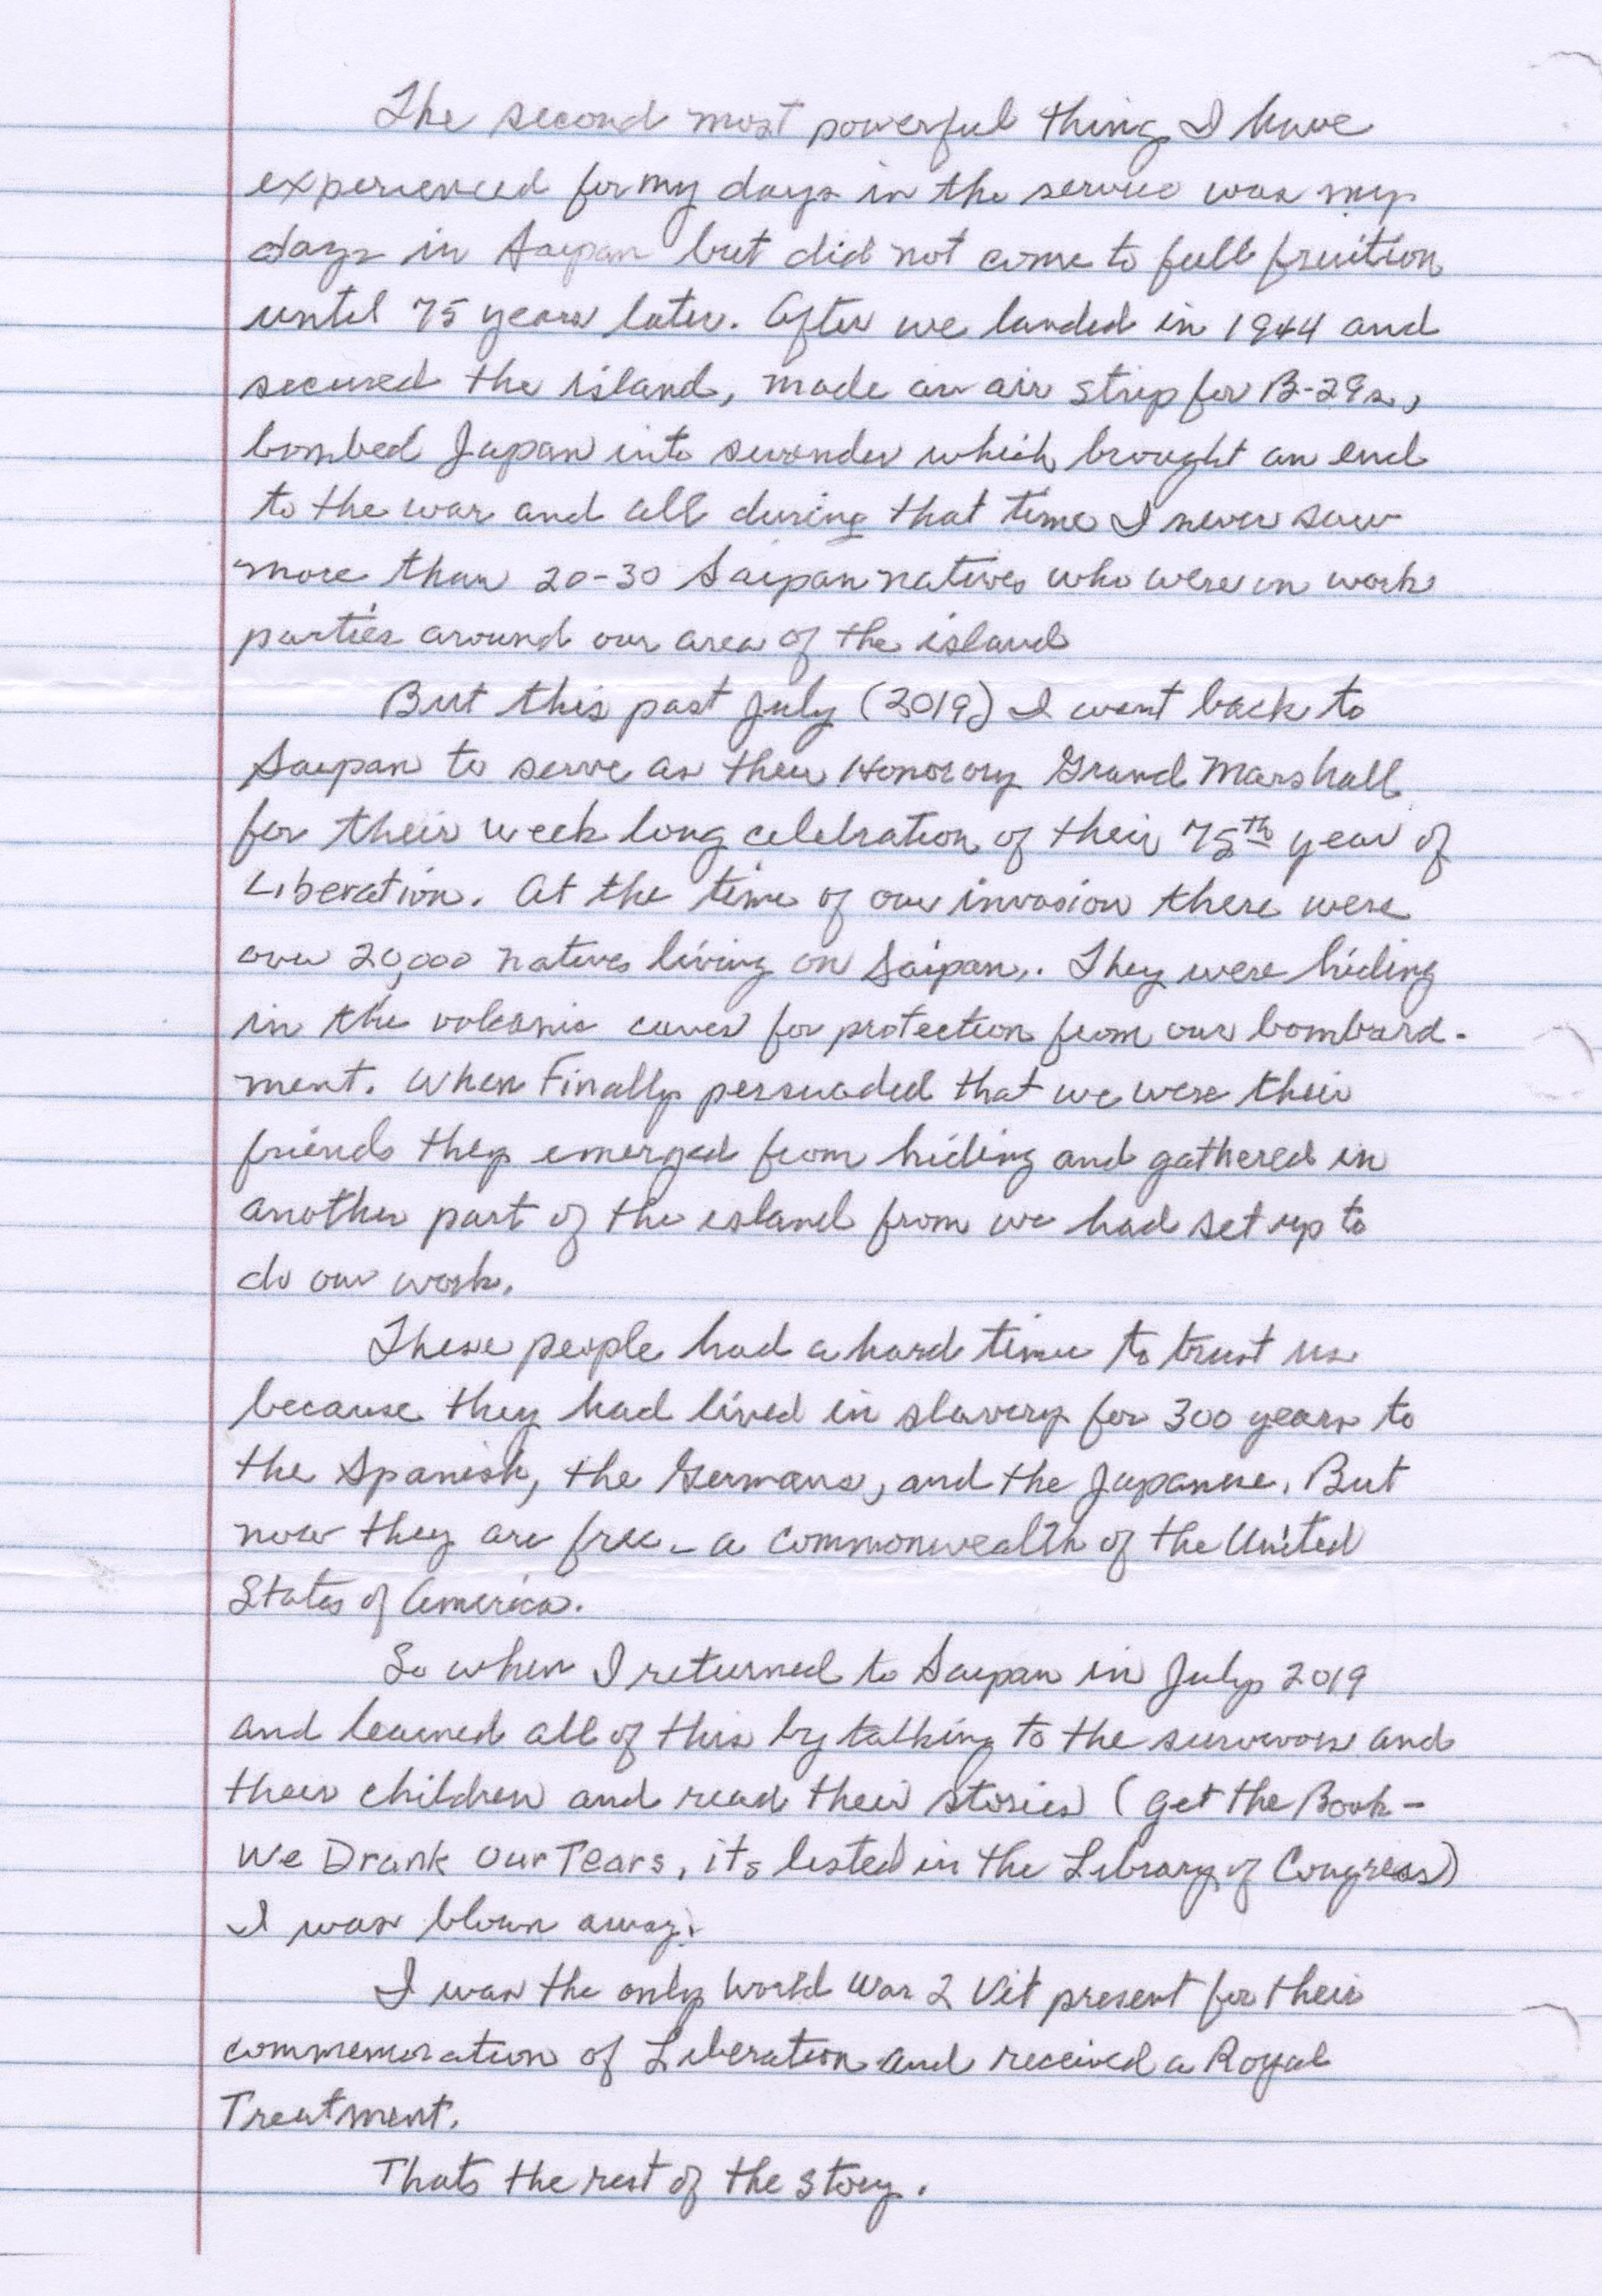 The second most powerful thing I have
experienced for my days in the service was my
days in Saipan but did not come to full fruition
until 75 years later. After we landed in 1944 and
secured the island, made an air strip for B-29s,
bombed Japan into surender which brought an end
to the war and all during that time I never saw
more than 20-30 Saipan natives who were in work
parties around our area of the island
But this past July (2019) I went back to
Saipan to serve as their Honorary Grand Marshall
for their week long celebration of their 75th year of
Liberation. At the time of our invasion there were
over 20,000 natives living on Saipan. They were hiding
in the volcanic caves for protection from our bombard-
ment. When Finally persuaded that we were their
friends they emerged from hiding and gathered in
another part of the island from we had set up to
do our work.
These people had a hard time to trust us
because they had lived in slavery for 300 years to
the Spanish, the Germans, and the Japanese. But
now they are free - a commonwealth of the United
States of America.
So when I returned to Saipan in July 2019
and learned all of this by talking to the survivors and
their children and read their stories (get the Book -
We Drank Our Tears, its listed in the Library of Congress)
I was blown away.
I was the only World War 2 Vet present for their
commemoration of Liberation and received a Royal
Treatment.
Thats the rest of the story.